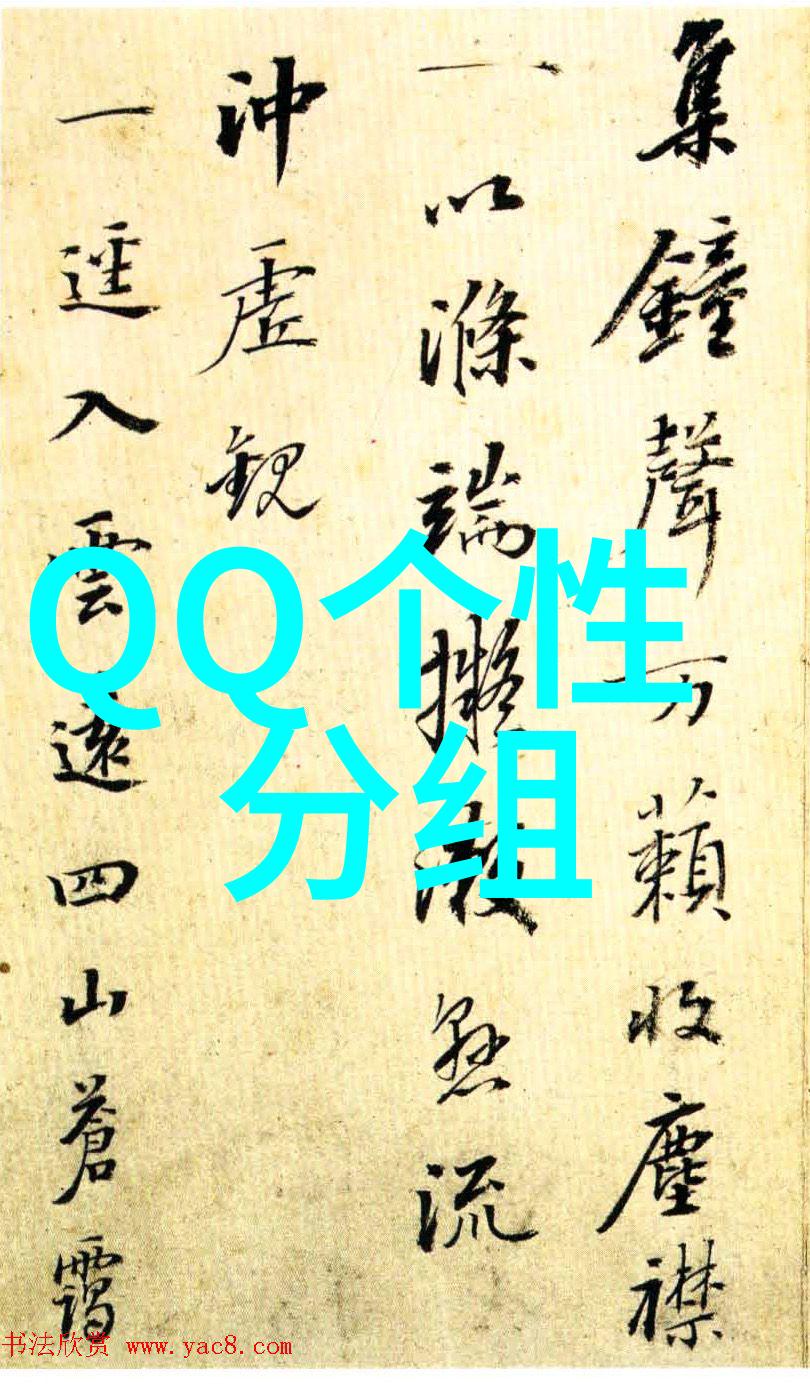 集鐘聲万籟收塵襟
一以滌端擬流
沖虛観
一逕入雲遠四山蒼靄
QQ个性
分组
书法欣赏 www.yac8.com